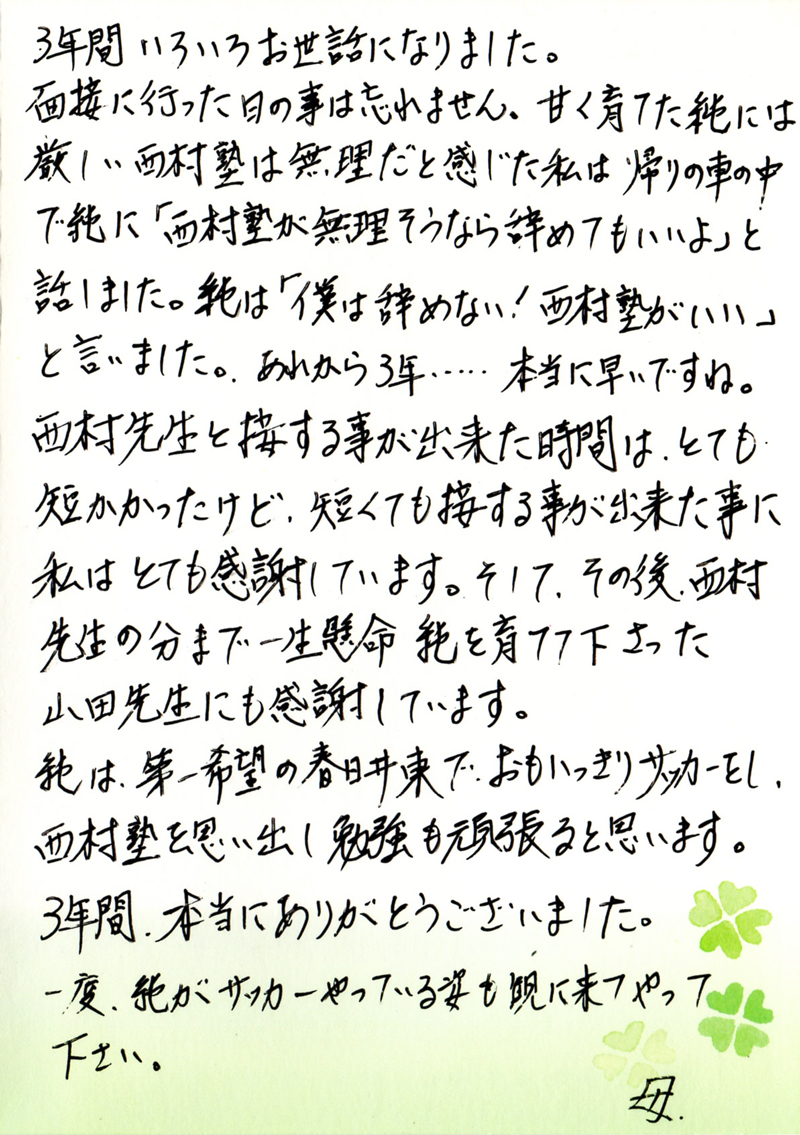 3年間いろいろお世話になりました。
面接に行った日の事は忘れません。甘く育てた純には
厳しい西村塾は無理だと感じた私は帰りの車の中
で純に「西村塾が無理そうなら辞めてもいいよ」と
話しました。純は「僕は辞めない!西村塾がいい」
と言いました。あれから3年……本当に早いですね。
西村先生と接する事が出来た時間は、とても
短かかったけど、短くても接する事が出来た事に
私はとても感謝しています。そして、その後、西村
先生の分まで一生懸命純を育てて下さった
山田先生にも感謝しています。
純は、第一希望の春日井東で、おもいっきりサッカーをし、
西村塾を思い出し勉強も頑張ると思います。
3年間、本当にありがとうございました。
一度、純がサッカーやっている姿も覗に来てやって
下さい。
母.